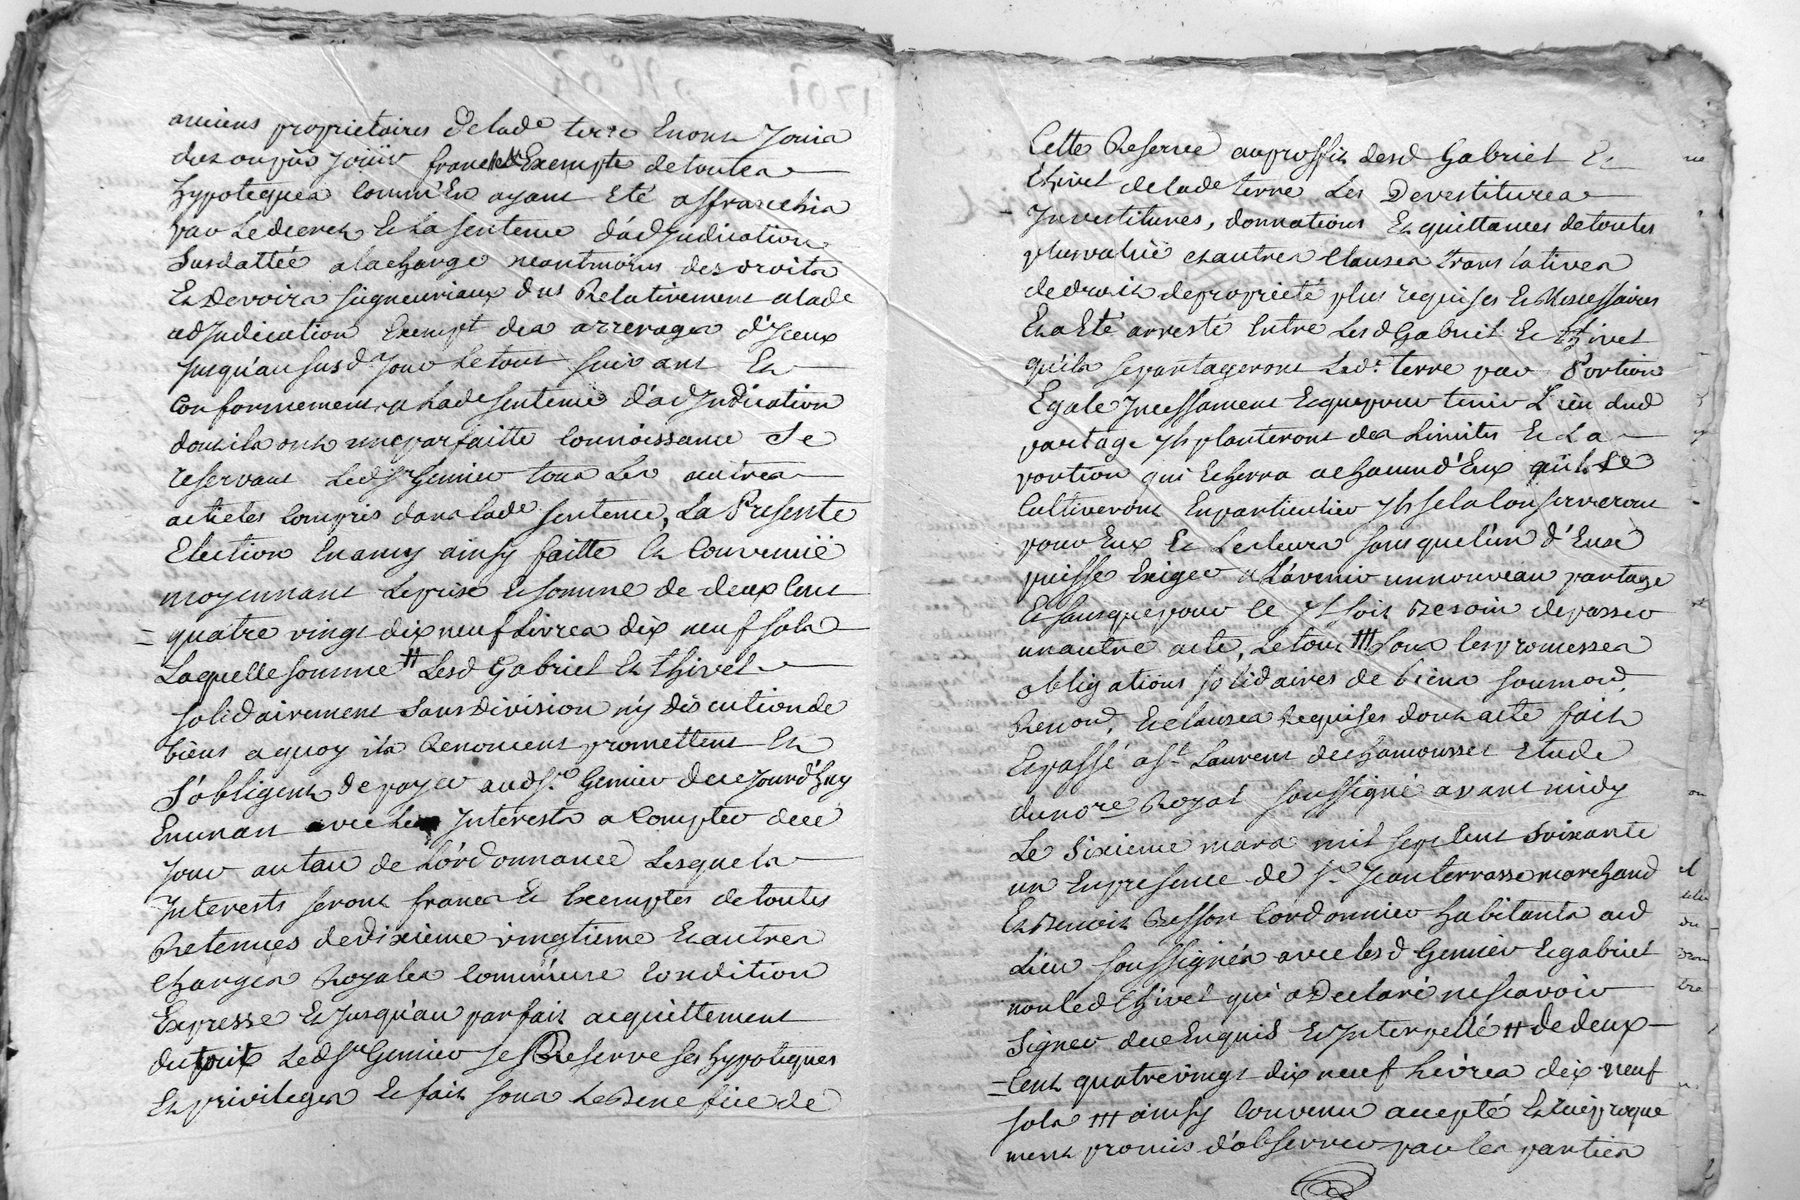 anciens proprietaires de lade terre en ont Jouis
dut ou pû Joüir Exempte de toutes
hypoteques comm'En ayant Eté affranchis
par Le decret Et La sentence d'adJudication
Susdattée a la charge neantmoins des droits
Et Devoirs seigneuriaux dus Relativement a lade
adJudication Exempt des arrerages d'Jceux
Jusqu'au susd Jour Le tout suivant Et
Conformement a Lade sentence d'adJudication
dont ils ont une parfaitte Connoissance Se
reservant Led sr Genier tous Les autres
articles Compris dans lade sentence, La Presente
Election En amy ainsy faitte Et Convenuë
moyennant Le prix Et somme de deux Cent
= quatre vingt dix neuf Livres dix neuf sols
Laquelle somme # Lesd Gabriel Et thivel
solidairement sans division n'y discution de
biens a quoy ils Renoncent promettent Et
S'obligent de payer aud sr. Genier de ce Jourd'huy
En un an avec Les Jnterests a Compter de ce
Jour au taux de L'ordonnance Lesquels
Jnterests seront francs Et Exemptes de toutes
Retenues de dixieme vingtieme Et autres
Charges Royales comm'une Condition
Expresse Et Jusqu'au parfait acquittement
du tout Led sr Genier se Reserve ses hypoteques
Et privileges Et fait sous Le Benefice de
Cette Reserve au proffit desd Gabriel Et
thivel de lade terre Les Devestitures
Jnvestitures, donnations Et quittances de toutes
plus valuë et autres Clauses translatives
de droit de proprieté plus requises Et Necessaires
Et a Eté arresté Entre Lesd Gabriel Et thivel
qu'ils se partageront Lade. terre par Portion
Egale Jncessament Et que pour tenir Lieu dud
partage Jls planteront des Limites Et La
portion qui Echerra a chacun d'Eux qu'ils Se
Cultiveront En particulier Jls se la Conserveront
pour Eux Et Les Leurs sans que L'un d'Eux
puisse Exiger a L'avenir un nouveau partage
Et sans que pour ce Jl soit Besoin de passer
un autre acte, Le tout ### sous Les promesses
obligations solidaires de biens soumond.
Renond. Et clauses Requises dont acte fait
Et passé a st Laurent de chamousset Etude
du nore Royal soussigné avant midy
Le Sixieme mars mil sept Cent Soixante
un En presence de sr. Jean terrasse marchand
Et Benoit Besson Cordonnier habitants aud
Lieu soussignés avec Lesd Genier Et gabriel
non led thivel qui a Declaré ne scavoir
Signer de ce Enquis Et Jnterpellé # de deux
= Cent quatre vingt dix neuf Livres dix neuf
sols ### ainsy Convenu accepté Et reciproque
ment promis d'observer par Les parties